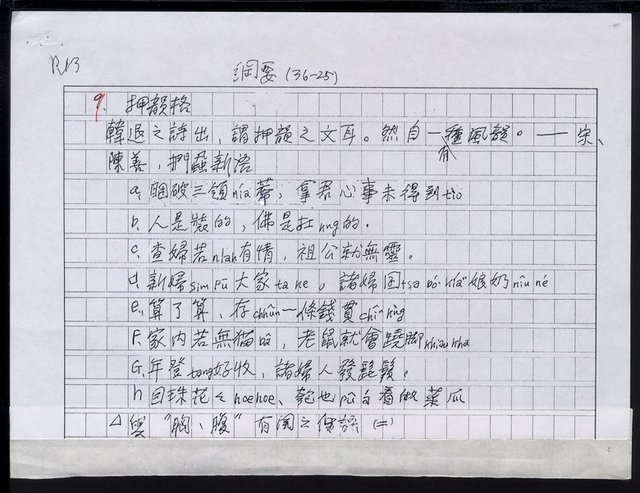 R13
綱要(36-25)
9. 押韻格
韓退之詩出,謂押韻之文耳。然自有一種風韻。——宋、
陳善,捫蝨新語
a. 睏破三領nía蓆,拿君心事未得到tio
b. 人是裝的,佛是扛kng的。
c. 查婦若niah有情,祖公就無靈。
d. 新婦sim pū大家ta ke,諸婦囝tsa bó kiaⁿ娘奶niu né
e. 算了算,存chhûn一條錢貫chîⁿ kǹg
F. 家内若無猫,老鼠就會蹺脚khiau kha
G. 年登tang好收,諸婦人發髭鬚。
h 目珠花々hoe hoe、匏也pû 看做菜瓜
△與“胸、腹”有関之俗諺(二)